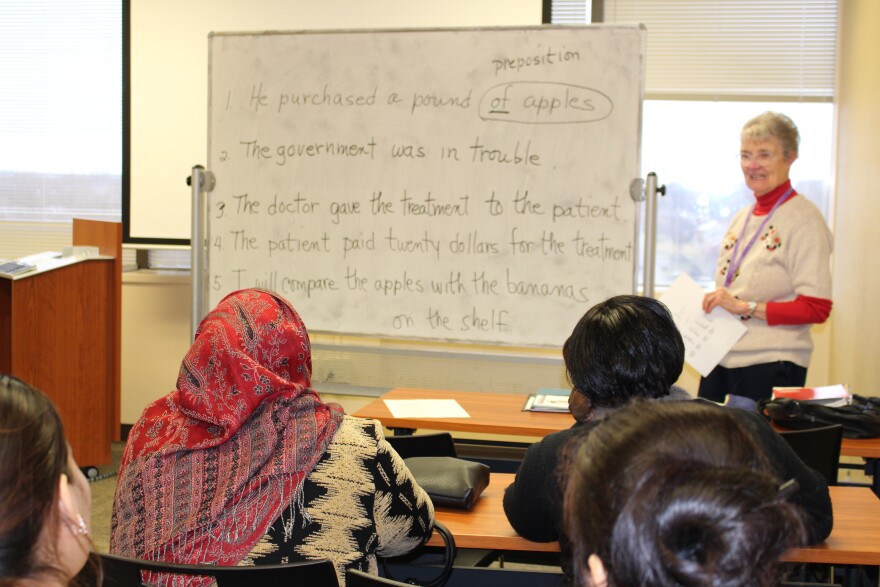 preposition
1. He purchased a pound of apples
2. The government was in trouble
3. The doctor gave the treatment to the patient.
4. The patient paid twenty dollars for the treatment
5. I will compare the apples with the bananas
on the shelf